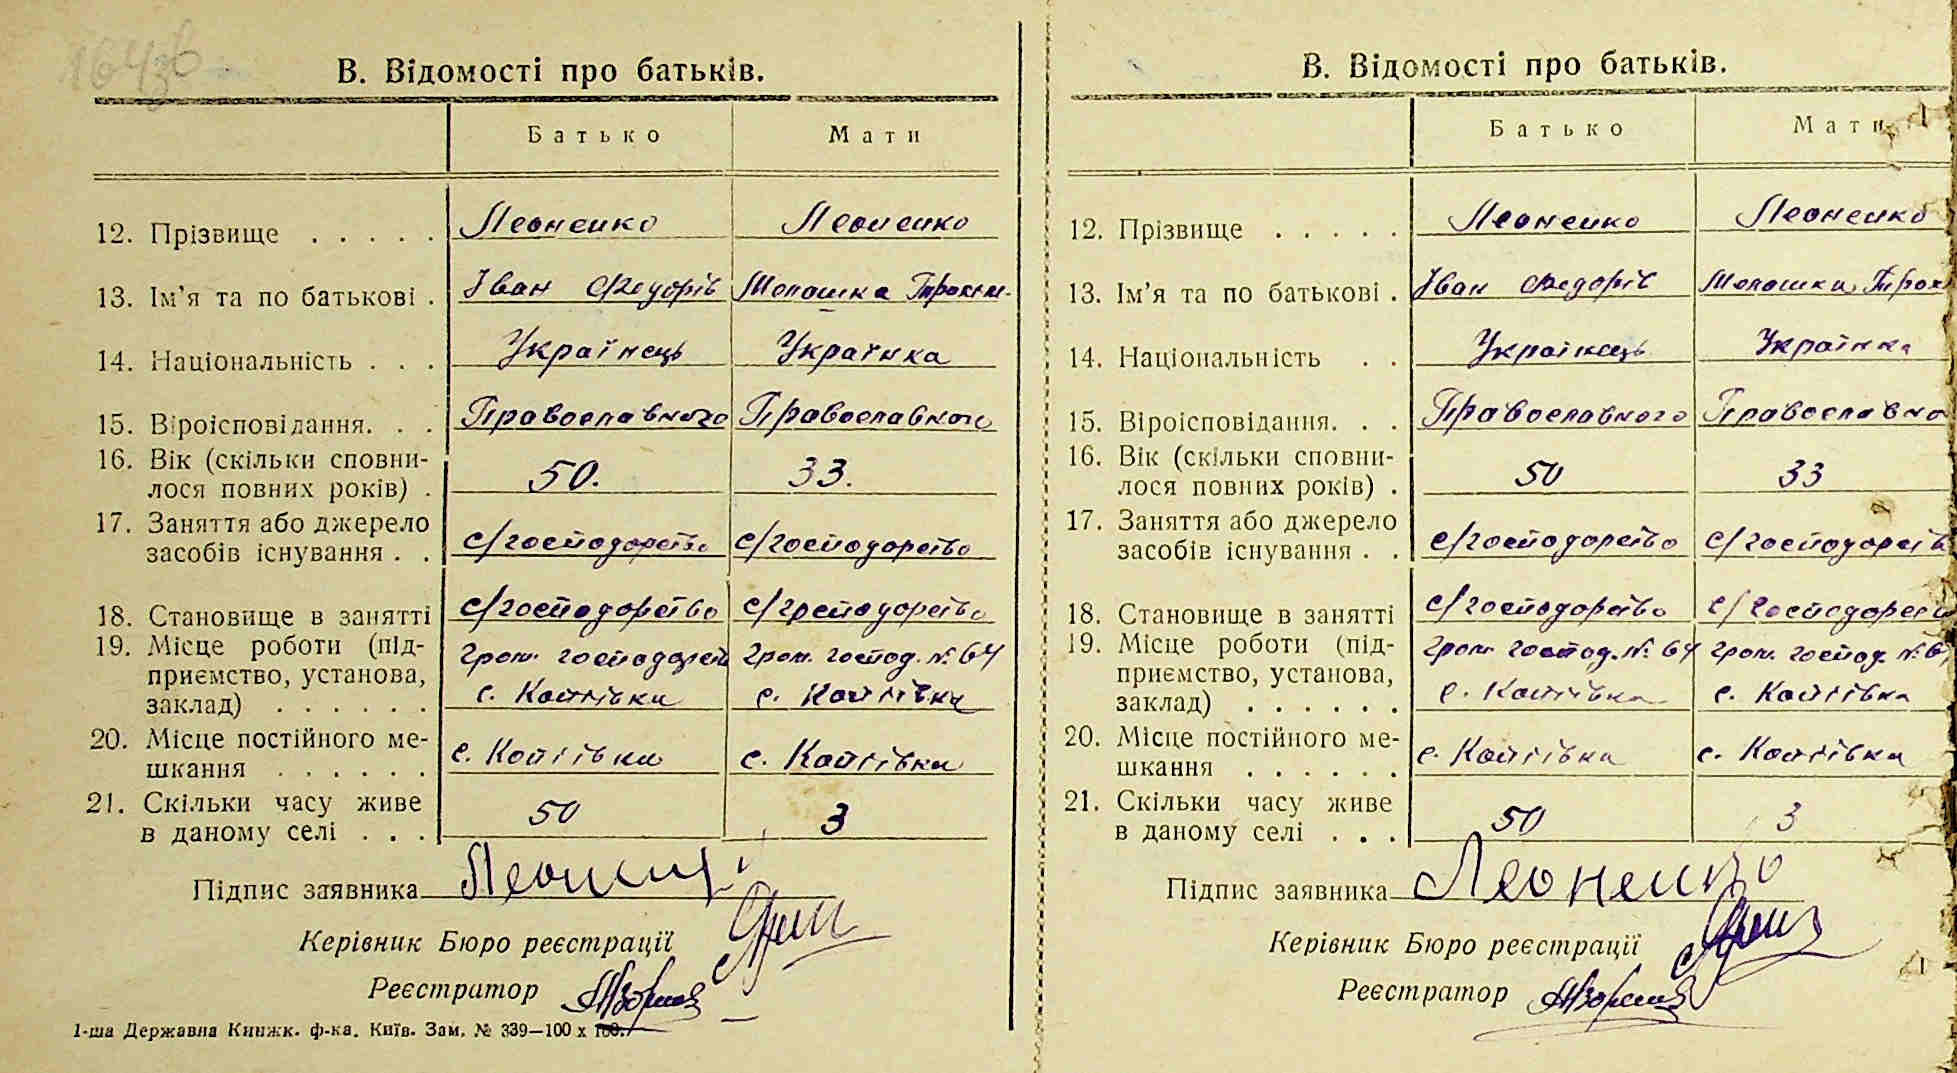 1643в
В. Відомості про батьків.
Батько Мати
12. Прізвище . . . . . Леоненко Леоненко
13. Ім’я та по батькові . Іван Федорів Мопашка Трохим.
14. Національність . . . Українець Українка
15. Віроісповідання. . . Православного Православного
16. Вік (скільки сповни-
лося повних років) . 50. 33.
17. Заняття або джерело
засобів існування . . с/господарство с/господарство
18. Становище в занятті с/господарство с/господарство
19. Місце роботи (під- гром. господарст гром. господ. № 64
приємство, установа, с. Коптівка с. Коптівка
заклад) . . . . . .
20. Місце постійного ме- с. Коптівка с. Коптівка
шкання . . . . . .
21. Скільки часу живе 50 3
в даному селі . . .
Підпис заявника
Керівник Бюро реєстрації
Реєстратор
1-ша Державна Книжк. ф-ка. Київ. Зам. № 339—100 х 100.
В. Відомості про батьків.
Батько Мати
12. Прізвище . . . . . Леоненко Леоненко
13. Ім’я та по батькові . Іван Федорів Мопашка Трох
14. Національність . . Українець Українка
15. Віроісповідання. . . Православного Православно
16. Вік (скільки сповни-
лося повних років) . 50 33
17. Заняття або джерело
засобів існування . . с/господарство с/господарств
18. Становище в занятті с/господарство с/господарств
19. Місце роботи (під- гром. господ. № 64 гром. господ. № 6
приємство, установа, с. Коптівка с. Коптівка
заклад) . . . . . .
20. Місце постійного ме- с. Коптівка с. Коптівка
шкання . . . . . .
21. Скільки часу живе 50 3
в даному селі . . .
Підпис заявника Леоненко
Керівник Бюро реєстрації
Реєстратор